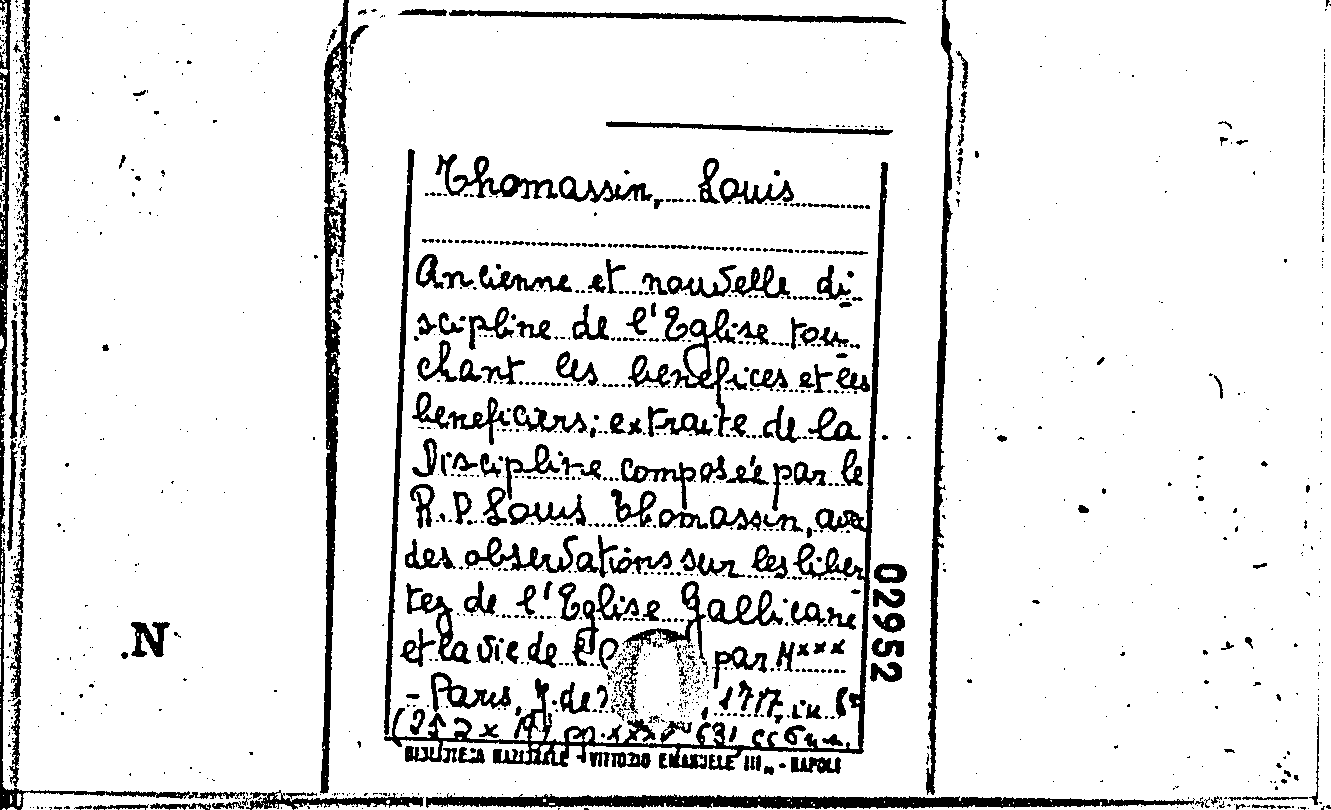 Thomassin, Louis
Ancienne et nouvelle di-
scipline de l'Eglise tou-
chant les benefices et les
beneficiers; extraite de la
Discipline composée par le
R.P. Louis Thomassin, avec
des observations sur les liber-
tez de l'Eglise Gallicane
et la vie de par M***
- Paris, 1717, in
BIBLIOTECA NAZIONALE "VITTORIO EMANUELE III" - NAPOLI
02952
.N